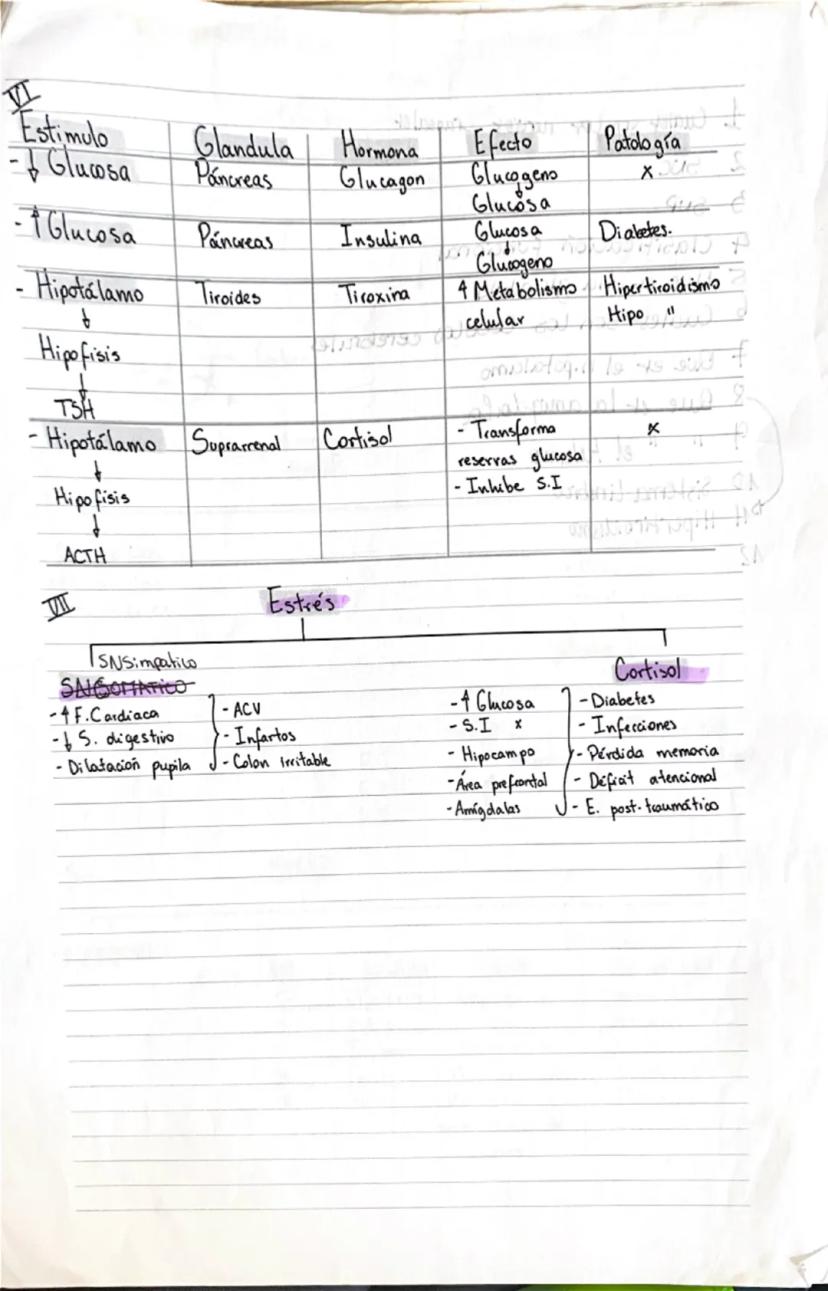 VI
Estimulo Glandula Hormona Efecto Patología
- ↓ Glucosa Páncreas Glucagon Glucogeno x
↓
Glucosa
- ↑ Glucosa Páncreas Insulina Glucosa Diabetes.
↓
Glucogeno
- Hipotálamo Tiroides Tiroxina ↑ Metabolismo Hipertiroidismo
↓ celular Hipo "
Hipofisis
↓
TSH
- Hipotálamo Suprarrenal Cortisol - Transforma x
↓ reservas glucosa
Hipofisis - Inhibe S.I
↓
ACTH
VII Estrés
SNSimpatico Cortisol
- ↑ F. Cardiaca - ACV
- ↓ S. digestivo - Infartos
- Dilatación pupila - Colon irritable
- ↑ Glucosa - Diabetes
- S.I x - Infecciones
- Hipocampo - Pérdida memoria
- Área prefrontal - Déficit atencional
- Amígdalas - E. post-traumático